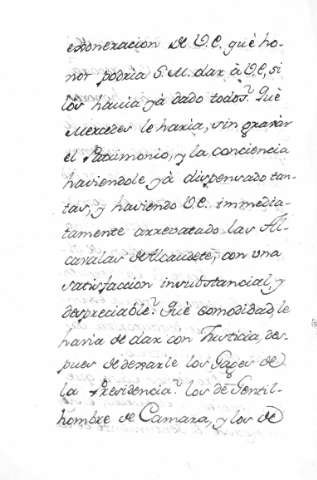 exoneracion de V.E. què ho-
nor podria S.M. dar à V.E, si
los havia yà dado todos? Què
Mercedes le haria, sin gravar
el Patrimonio, y la conciencia
haviendole yà dispensado tan-
tas, y haviendo V.E. immedia-
tamente arrevatado las Al-
cavalas de Alcaudete, con una
satisfaccion insubstancial, y
despreciable? Què comodidad, le
havia de dar con Justicia, des-
pues de dexarle los Gages de
la Presidencia? los de Gentil-
hombre de Camara, y los de